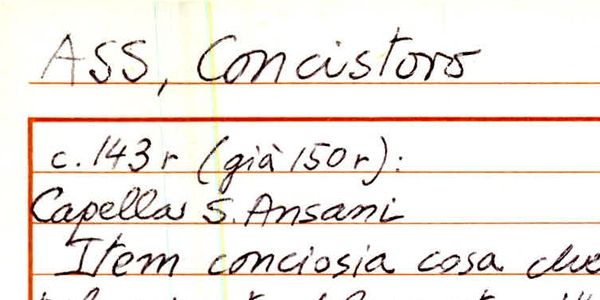 ASS, Concistoro
c. 143 r (già 150 r):
Capella S. Ansani
Item conciosia cosa che